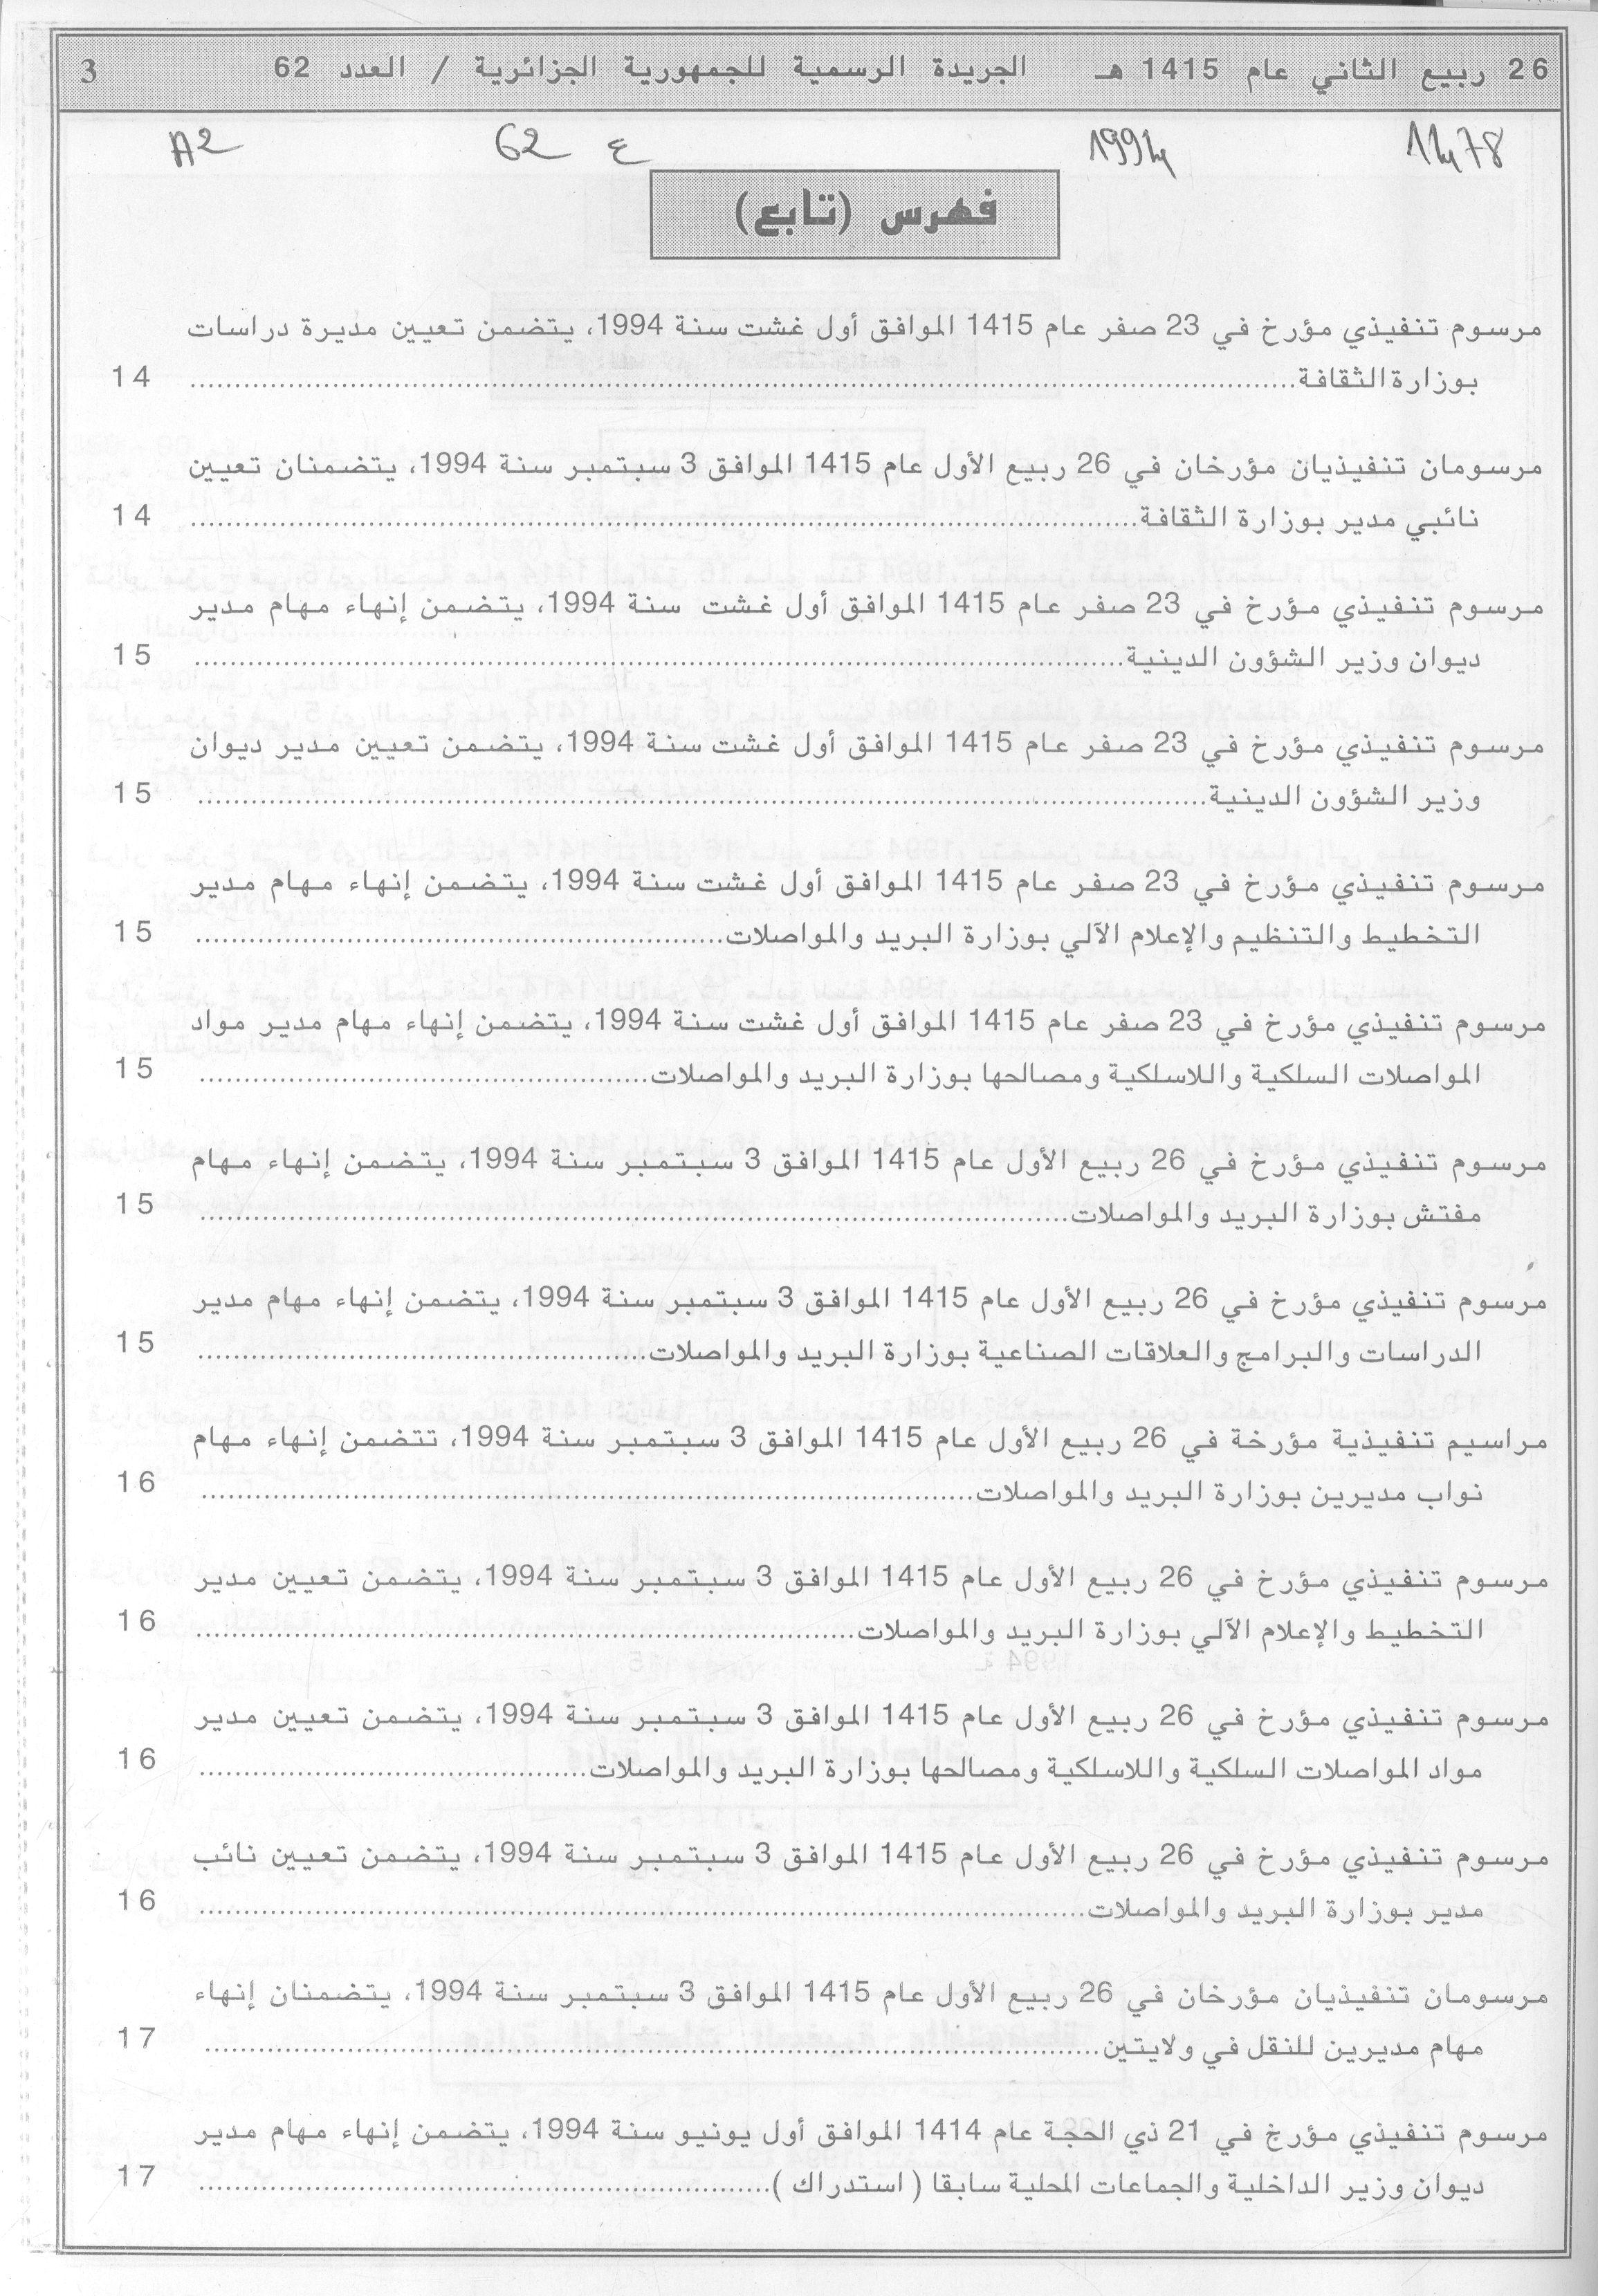 26 ربيع الثاني عام 1415 هـ الجريدة الرسمية للجمهورية الجزائرية / العدد 62 3
1478 1994 ع 62 A2
فهرس (تابع)
مرسوم تنفيذي مؤرخ في 23 صفر عام 1415 الموافق أول غشت سنة 1994، يتضمن تعيين مديرة دراسات
بوزارة الثقافة........................................ 14
مرسومان تنفيذيان مؤرخان في 26 ربيع الأول عام 1415 الموافق 3 سبتمبر سنة 1994، يتضمنان تعيين
نائبي مدير بوزارة الثقافة........................................ 14
مرسوم تنفيذي مؤرخ في 23 صفر عام 1415 الموافق أول غشت سنة 1994، يتضمن إنهاء مهام مدير
ديوان وزير الشؤون الدينية........................................ 15
مرسوم تنفيذي مؤرخ في 23 صفر عام 1415 الموافق أول غشت سنة 1994، يتضمن تعيين مدير ديوان
وزير الشؤون الدينية........................................ 15
مرسوم تنفيذي مؤرخ في 23 صفر عام 1415 الموافق أول غشت سنة 1994، يتضمن إنهاء مهام مدير
التخطيط والتنظيم والإعلام الآلي بوزارة البريد والمواصلات........................................ 15
مرسوم تنفيذي مؤرخ في 23 صفر عام 1415 الموافق أول غشت سنة 1994، يتضمن إنهاء مهام مدير مواد
المواصلات السلكية واللاسلكية ومصالحها بوزارة البريد والمواصلات........................................ 15
مرسوم تنفيذي مؤرخ في 26 ربيع الأول عام 1415 الموافق 3 سبتمبر سنة 1994، يتضمن إنهاء مهام
مفتش بوزارة البريد والمواصلات........................................ 15
مرسوم تنفيذي مؤرخ في 26 ربيع الأول عام 1415 الموافق 3 سبتمبر سنة 1994، يتضمن إنهاء مهام مدير
الدراسات والبرامج والعلاقات الصناعية بوزارة البريد والمواصلات........................................ 15
مراسيم تنفيذية مؤرخة في 26 ربيع الأول عام 1415 الموافق 3 سبتمبر سنة 1994، تتضمن إنهاء مهام
نواب مديرين بوزارة البريد والمواصلات........................................ 16
مرسوم تنفيذي مؤرخ في 26 ربيع الأول عام 1415 الموافق 3 سبتمبر سنة 1994، يتضمن تعيين مدير
التخطيط والإعلام الآلي بوزارة البريد والمواصلات........................................ 16
مرسوم تنفيذي مؤرخ في 26 ربيع الأول عام 1415 الموافق 3 سبتمبر سنة 1994، يتضمن تعيين مدير
مواد المواصلات السلكية واللاسلكية ومصالحها بوزارة البريد والمواصلات........................................ 16
مرسوم تنفيذي مؤرخ في 26 ربيع الأول عام 1415 الموافق 3 سبتمبر سنة 1994، يتضمن تعيين نائب
مدير بوزارة البريد والمواصلات........................................ 16
مرسومان تنفيذيان مؤرخان في 26 ربيع الأول عام 1415 الموافق 3 سبتمبر سنة 1994، يتضمنان إنهاء
مهام مديرين للنقل في ولايتين........................................ 17
مرسوم تنفيذي مؤرخ في 21 ذي الحجة عام 1414 الموافق أول يونيو سنة 1994، يتضمن إنهاء مهام مدير
ديوان وزير الداخلية والجماعات المحلية سابقا ( استدراك )........................................ 17